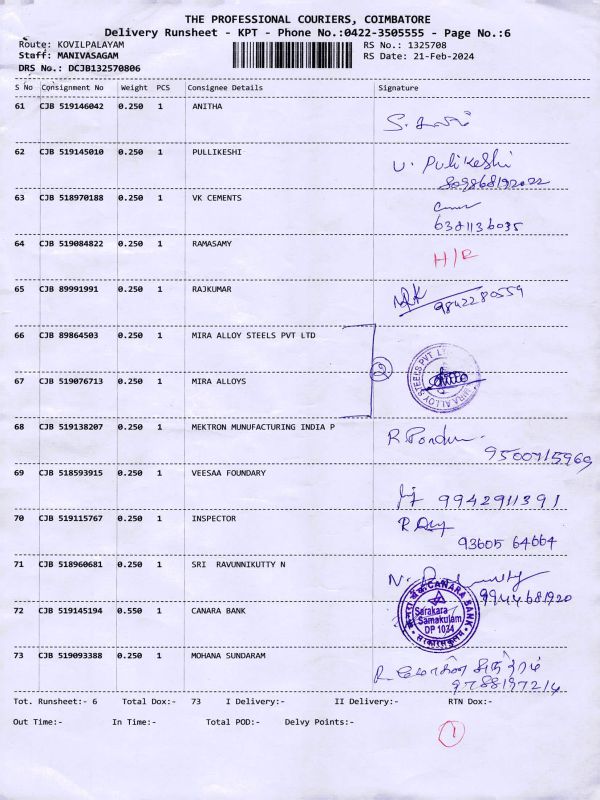 THE PROFESSIONAL COURIERS, COIMBATORE
Delivery Runsheet - KPT - Phone No.:0422-3505555 - Page No.:6
Route: KOVILPALAYAM
RS No.: 1325708
Staff: MANIVASAGAM
RS Date: 21-Feb-2024
DRS No.: DCJB132570806
S No Consignment No Weight PCS Consignee Details Signature
61 CJB 519146042 0.250 1 ANITHA
62 CJB 519145010 0.250 1 PULLIKESHI
U. Pulikeshi
63 CJB 518970188 0.250 1 VK CEMENTS
6381136035
64 CJB 519084822 0.250 1 RAMASAMY
H/R
65 CJB 89991991 0.250 1 RAJKUMAR
9842280559
66 CJB 89864503 0.250 1 MIRA ALLOY STEELS PVT LTD
2
MIRA ALLOY STEELS PVT LTD
67 CJB 519076713 0.250 1 MIRA ALLOYS
68 CJB 519138207 0.250 1 MEKTRON MUNUFACTURING INDIA P
9500715969
69 CJB 518593915 0.250 1 VEESAA FOUNDARY
9942911391
70 CJB 519115767 0.250 1 INSPECTOR
93605 64664
71 CJB 518960681 0.250 1 SRI RAVUNNIKUTTY N
9944681920
72 CJB 519145194 0.550 1 CANARA BANK
CANARA BANK
Sarakara
Samakulam
DP 1034
73 CJB 519093388 0.250 1 MOHANA SUNDARAM
9788197214
Tot. Runsheet:- 6 Total Dox:- 73 I Delivery:- II Delivery:- RTN Dox:-
Out Time:- In Time:- Total POD:- Delvy Points:-
1